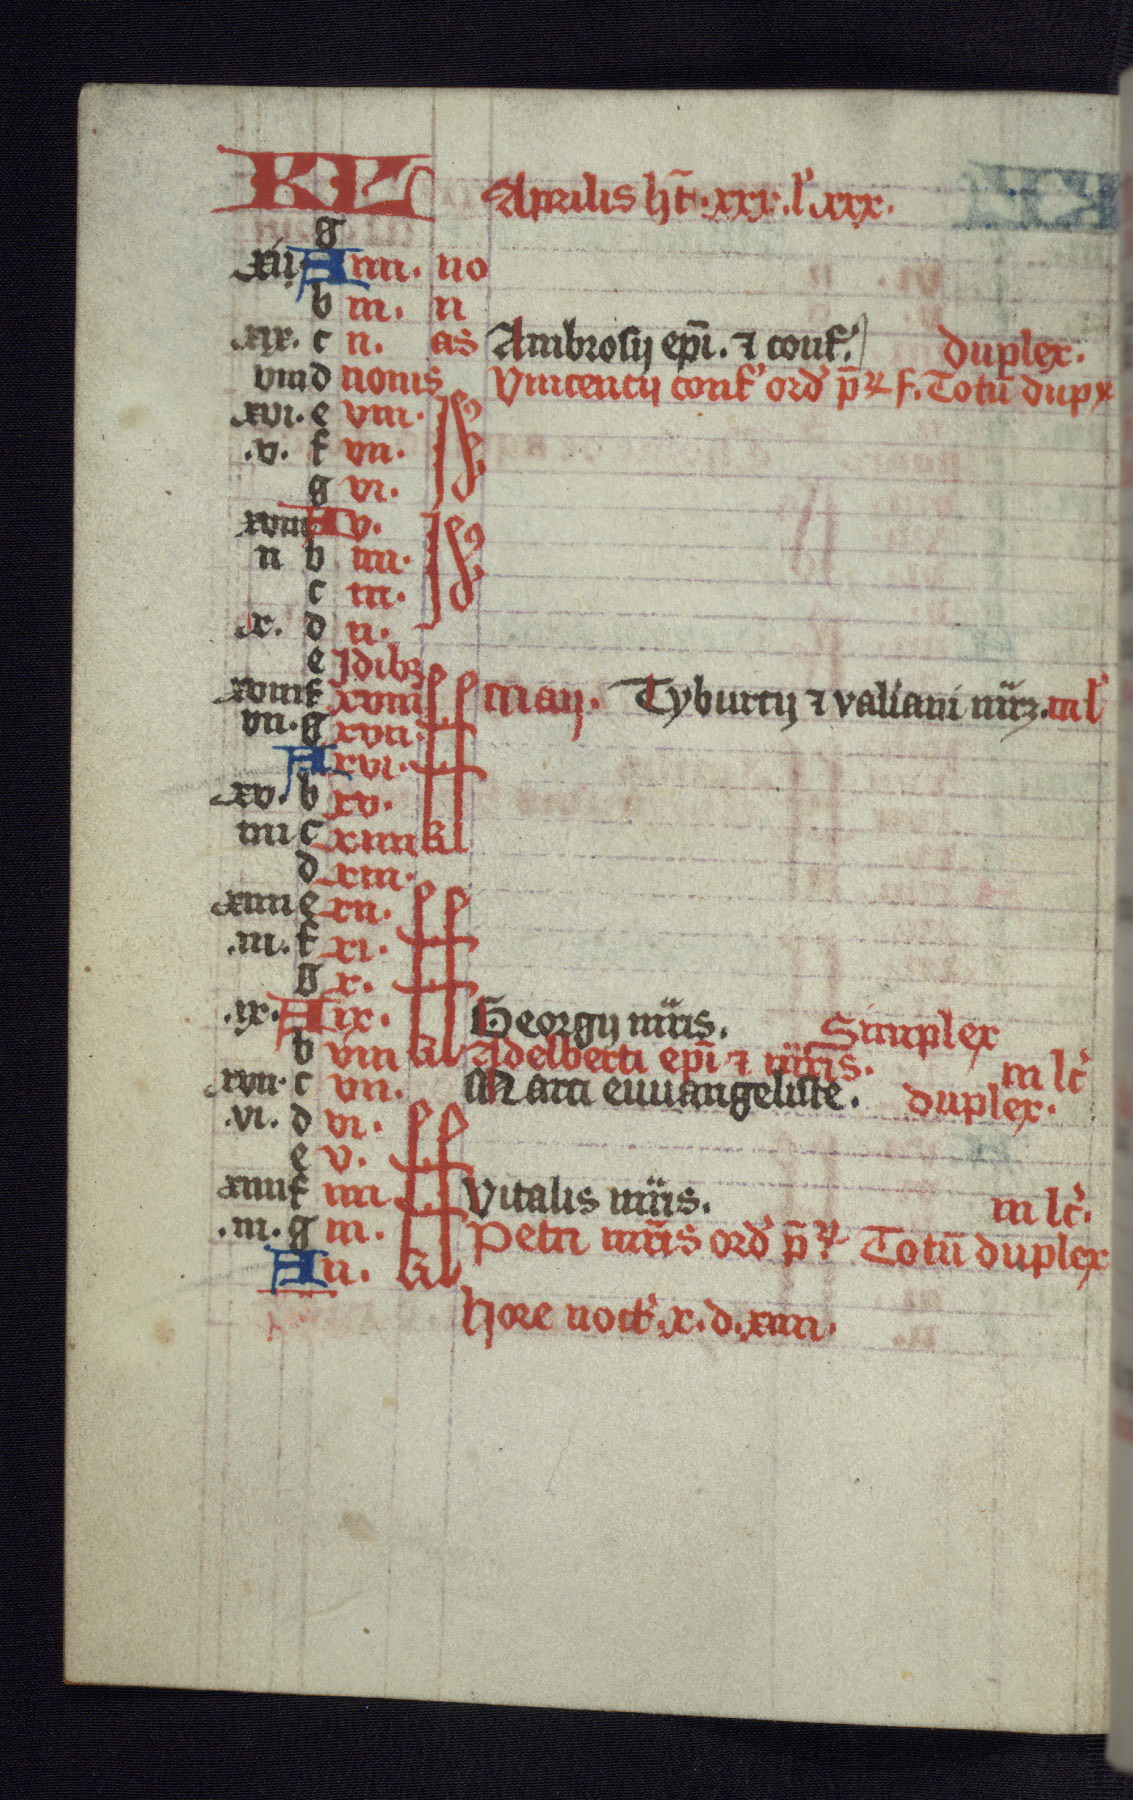 KL Aprilis ht̄. xxx. l' xxx.
g
xij A iiii. no
b iii. n
xix. c ii. as Ambrosij ep̄i. ⁊ conf. duplex.
viii d nonis Vincencij conf' ord' p̄r f. Totū dupx
xvi. e viii. Id
.v. f vii.
g vi.
xiii A v. Id
ii b iiii.
c iii.
x. d ii.
e Idibꝫ
xviii f xviii kl maij. Tyburcij ⁊ val'iani mr̄ꝫ. iii l'
vii. g xvii.
A xvi.
xv. b xv.
iiii c xiiii
d xiii.
xii e xii. kl
.i. f xi.
g x.
.ix. A ix. Georgij mr̄is. Simplex
b viii Adelberti ep̄i ⁊ mr̄is. iii lc̄
xvii. c vii. Marci euuangeliste. duplex.
.vi. d vi. kl
e v.
xiiii f iiii Vitalis mr̄is. iii lc̄.
.iii. g iii. Petri mr̄is ord' p̄r Totū duplex
A ii.
hore noct'. x. d. xiiii.